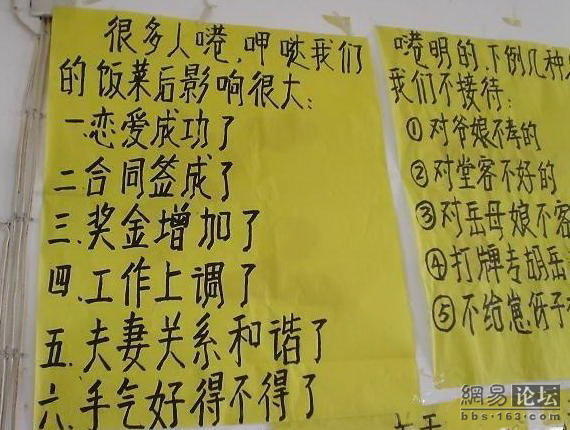 很多人嗯,呷哒我们
的饭菜后影响很大:
一.恋爱成功了
二.合同签成了
三.奖金增加了
四.工作上调了
五.夫妻关系和谐了
六.手气好得不得了
明的.下例几种
我们不接待:
①对爷娘不孝的
②对堂客不好的
③对岳母娘不客
④打牌专胡岳
⑤不给崽伢子
網易论坛
bbs.163.com